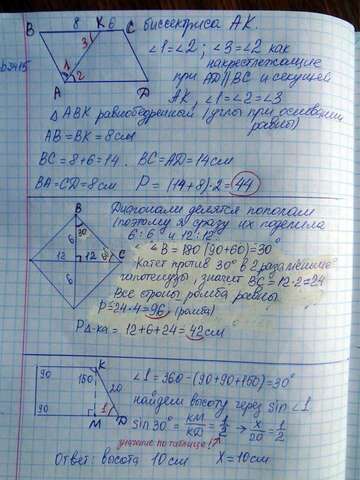 B 8 K 6 C биссектриса AK.
3 ∠1=∠2; ∠3=∠2 как
накрестлежащие
1 2 при AD||BC и секущей
A D AK, ∠1=∠2=∠3
△ABK равнобедренный (углы при основании
равны)
AB=BK=8см
BC=8+6=14. BC=AD=14см
BA=CD=8см P=(14+8)·2=44
Диагонали делятся пополам
B (поэтому я сразу их поделила
30 6:6 и 12:12
6 ∠B=180-(90+60)=30°
12 12 C Катет против 30° в 2 раза меньше
гипотенузы, значит BC=12·2=24
6 Все стороны ромба равны.
P=24·4=96 (ромба)
P△-ка=12+6+24=42см
K
90 150 ∠1=360-(90+90+150)=30°
20 найдем высоту через sin∠1
90 1 sin30°=KM/KD=1/2 → x/20=1/2
M D значение по таблице
Ответ: высота 10см X=10см